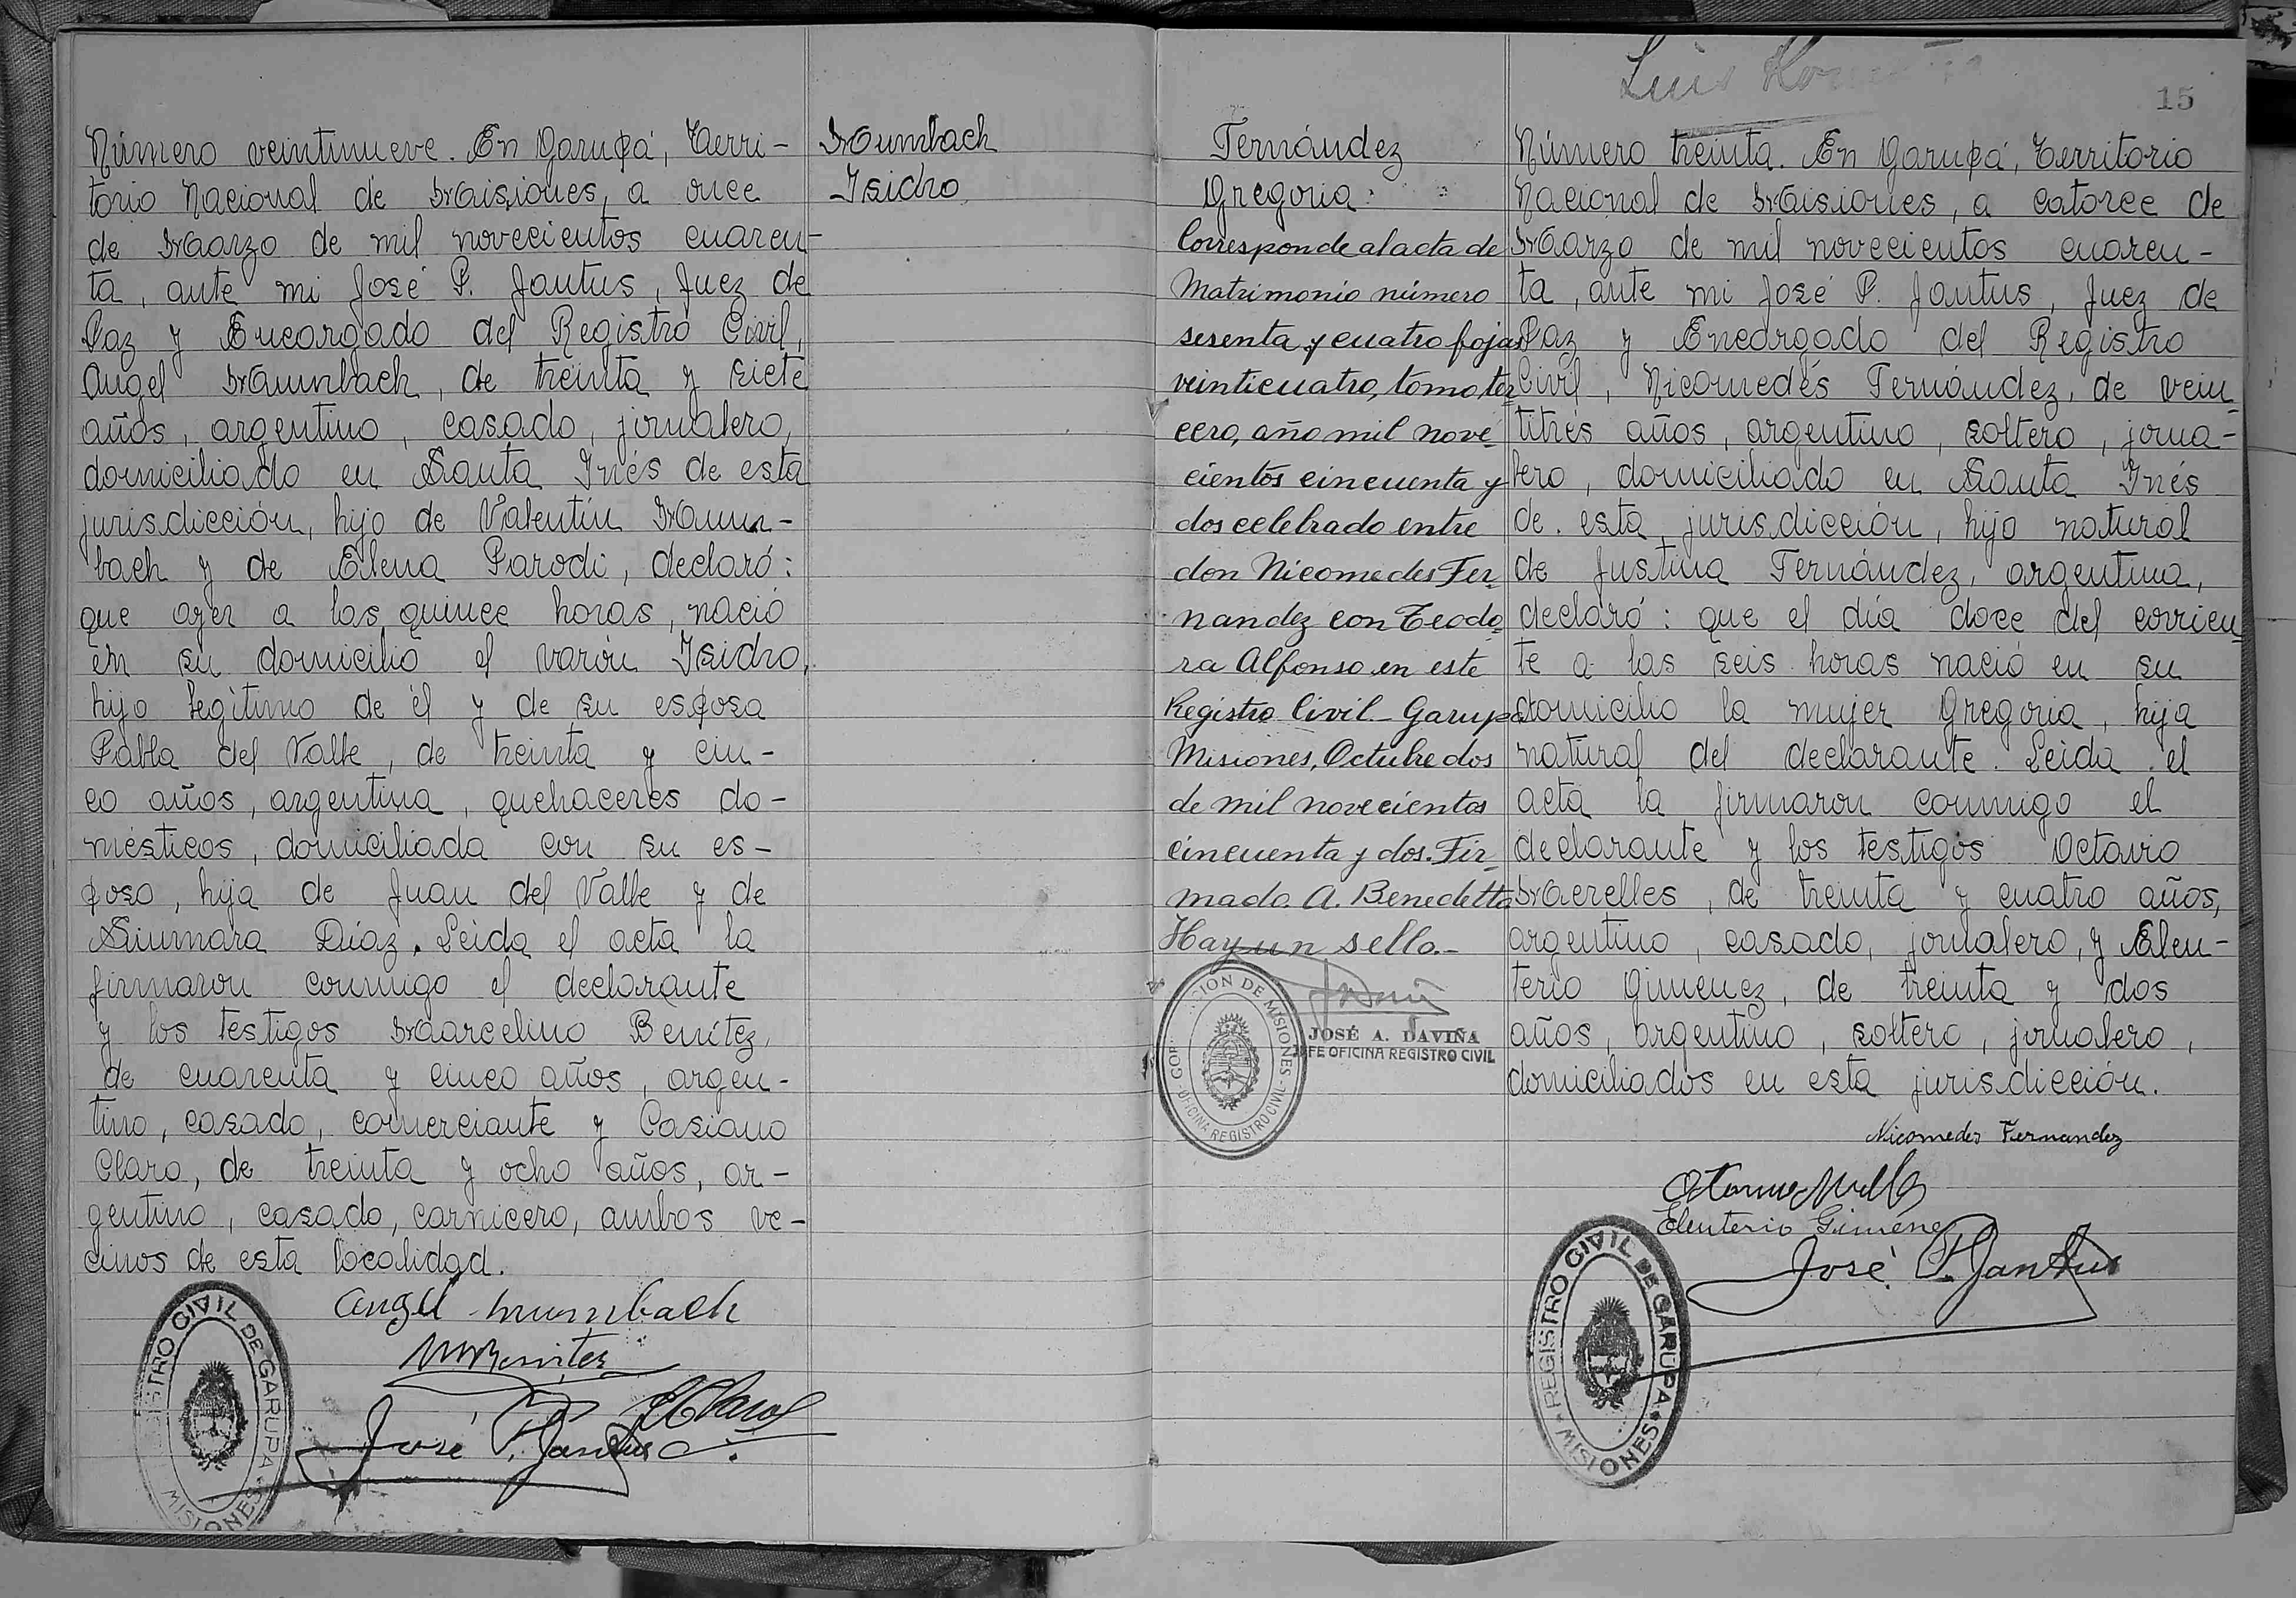 Número veintinueve. En Garupá, Terri-
torio Nacional de Misiones, a once
de Marzo de mil novecientos cuaren-
ta, ante mi José P. Jantus, Juez de
Paz y Encargado del Registro Civil,
Angel Mumbach, de treinta y siete
años, argentino, casado, jornalero,
domiciliado en Santa Inés de esta
jurisdicción, hijo de Valentín Mum-
bach y de Elena Parodi, declaró:
que ayer a las quince horas, nació
en su domicilio el varón Isidro,
hijo legítimo de él y de su esposa
Pabla del Valle, de treinta y cin-
co años, argentina, quehaceres do-
mésticos, domiciliada con su es-
poso, hija de Juan del Valle y de
Díaz. Leida el acta la
firmaron conmigo el declarante
y los testigos Marcelino Benítez,
de cuarenta y cinco años, argen-
tino, casado, comerciante y Casiano
Claro, de treinta y ocho años, ar-
gentino, casado, carnicero, ambos ve-
cinos de esta localidad.
Angel Mumbach
M Benitez
Claro
José P. Jantus
REGISTRO CIVIL DE GARUPA
MISIONES
Mumbach
Isidro
Fernández
Gregoria
Corresponde al acta de
Matrimonio número
sesenta y cuatro fojas
veinticuatro, tomo ter
cero, año mil nove
cientos cincuenta y
dos celebrado entre
don Nicomedes Fer
nandez con Teodo
ra Alfonso en este
Registro Civil - Garupa
Misiones, Octubre dos
de mil novecientos
cincuenta y dos. Fir
mado. A. Benedetto
Hay un sello.-
JOSÉ A. DAVIÑA
JEFE OFICINA REGISTRO CIVIL
GOBERNACIÓN DE MISIONES
OFICINA REGISTRO CIVIL
Luis
15
Número treinta. En Garupá, Territorio
Nacional de Misiones, a catorce de
Marzo de mil novecientos cuaren-
ta, ante mi José P. Jantus, Juez de
Paz y Encargado del Registro
Civil, Nicomedes Fernández, de vein
titrés años, argentino, soltero, jorna-
lero, domiciliado en Santa Inés
de esta jurisdicción, hijo natural
de Justina Fernández, argentina,
declaró: que el día doce del corrien
te a las seis horas nació en su
domicilio la mujer Gregoria, hija
natural del declarante. Leida el
acta la firmaron conmigo el
declarante y los testigos Octavio
Maerelles, de treinta y cuatro años,
argentino, casado, jornalero, y Eleu-
terio Gimenez, de treinta y dos
años, argentino, soltero, jornalero,
domiciliados en esta jurisdicción.
Nicomedes Fernandez
Eleuterio Gimenez
José P. Jantus
REGISTRO CIVIL DE GARUPA
MISIONES